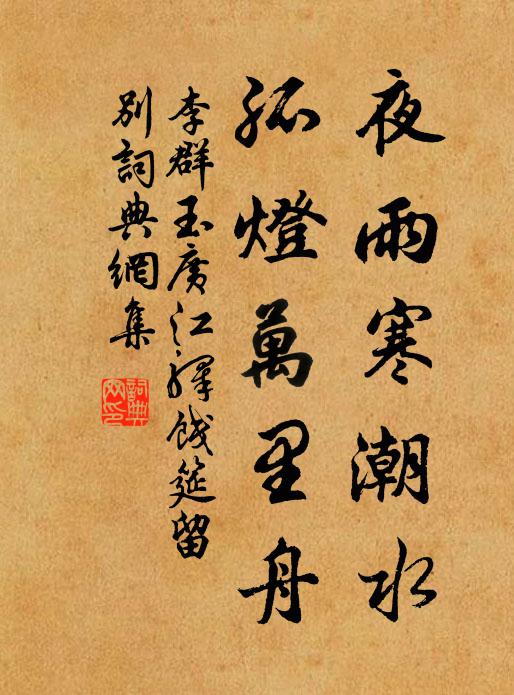 夜雨寒潮水
孤燈萬里舟
李群玉廣江驛餞筵留
別詞典網集
詞典
网印